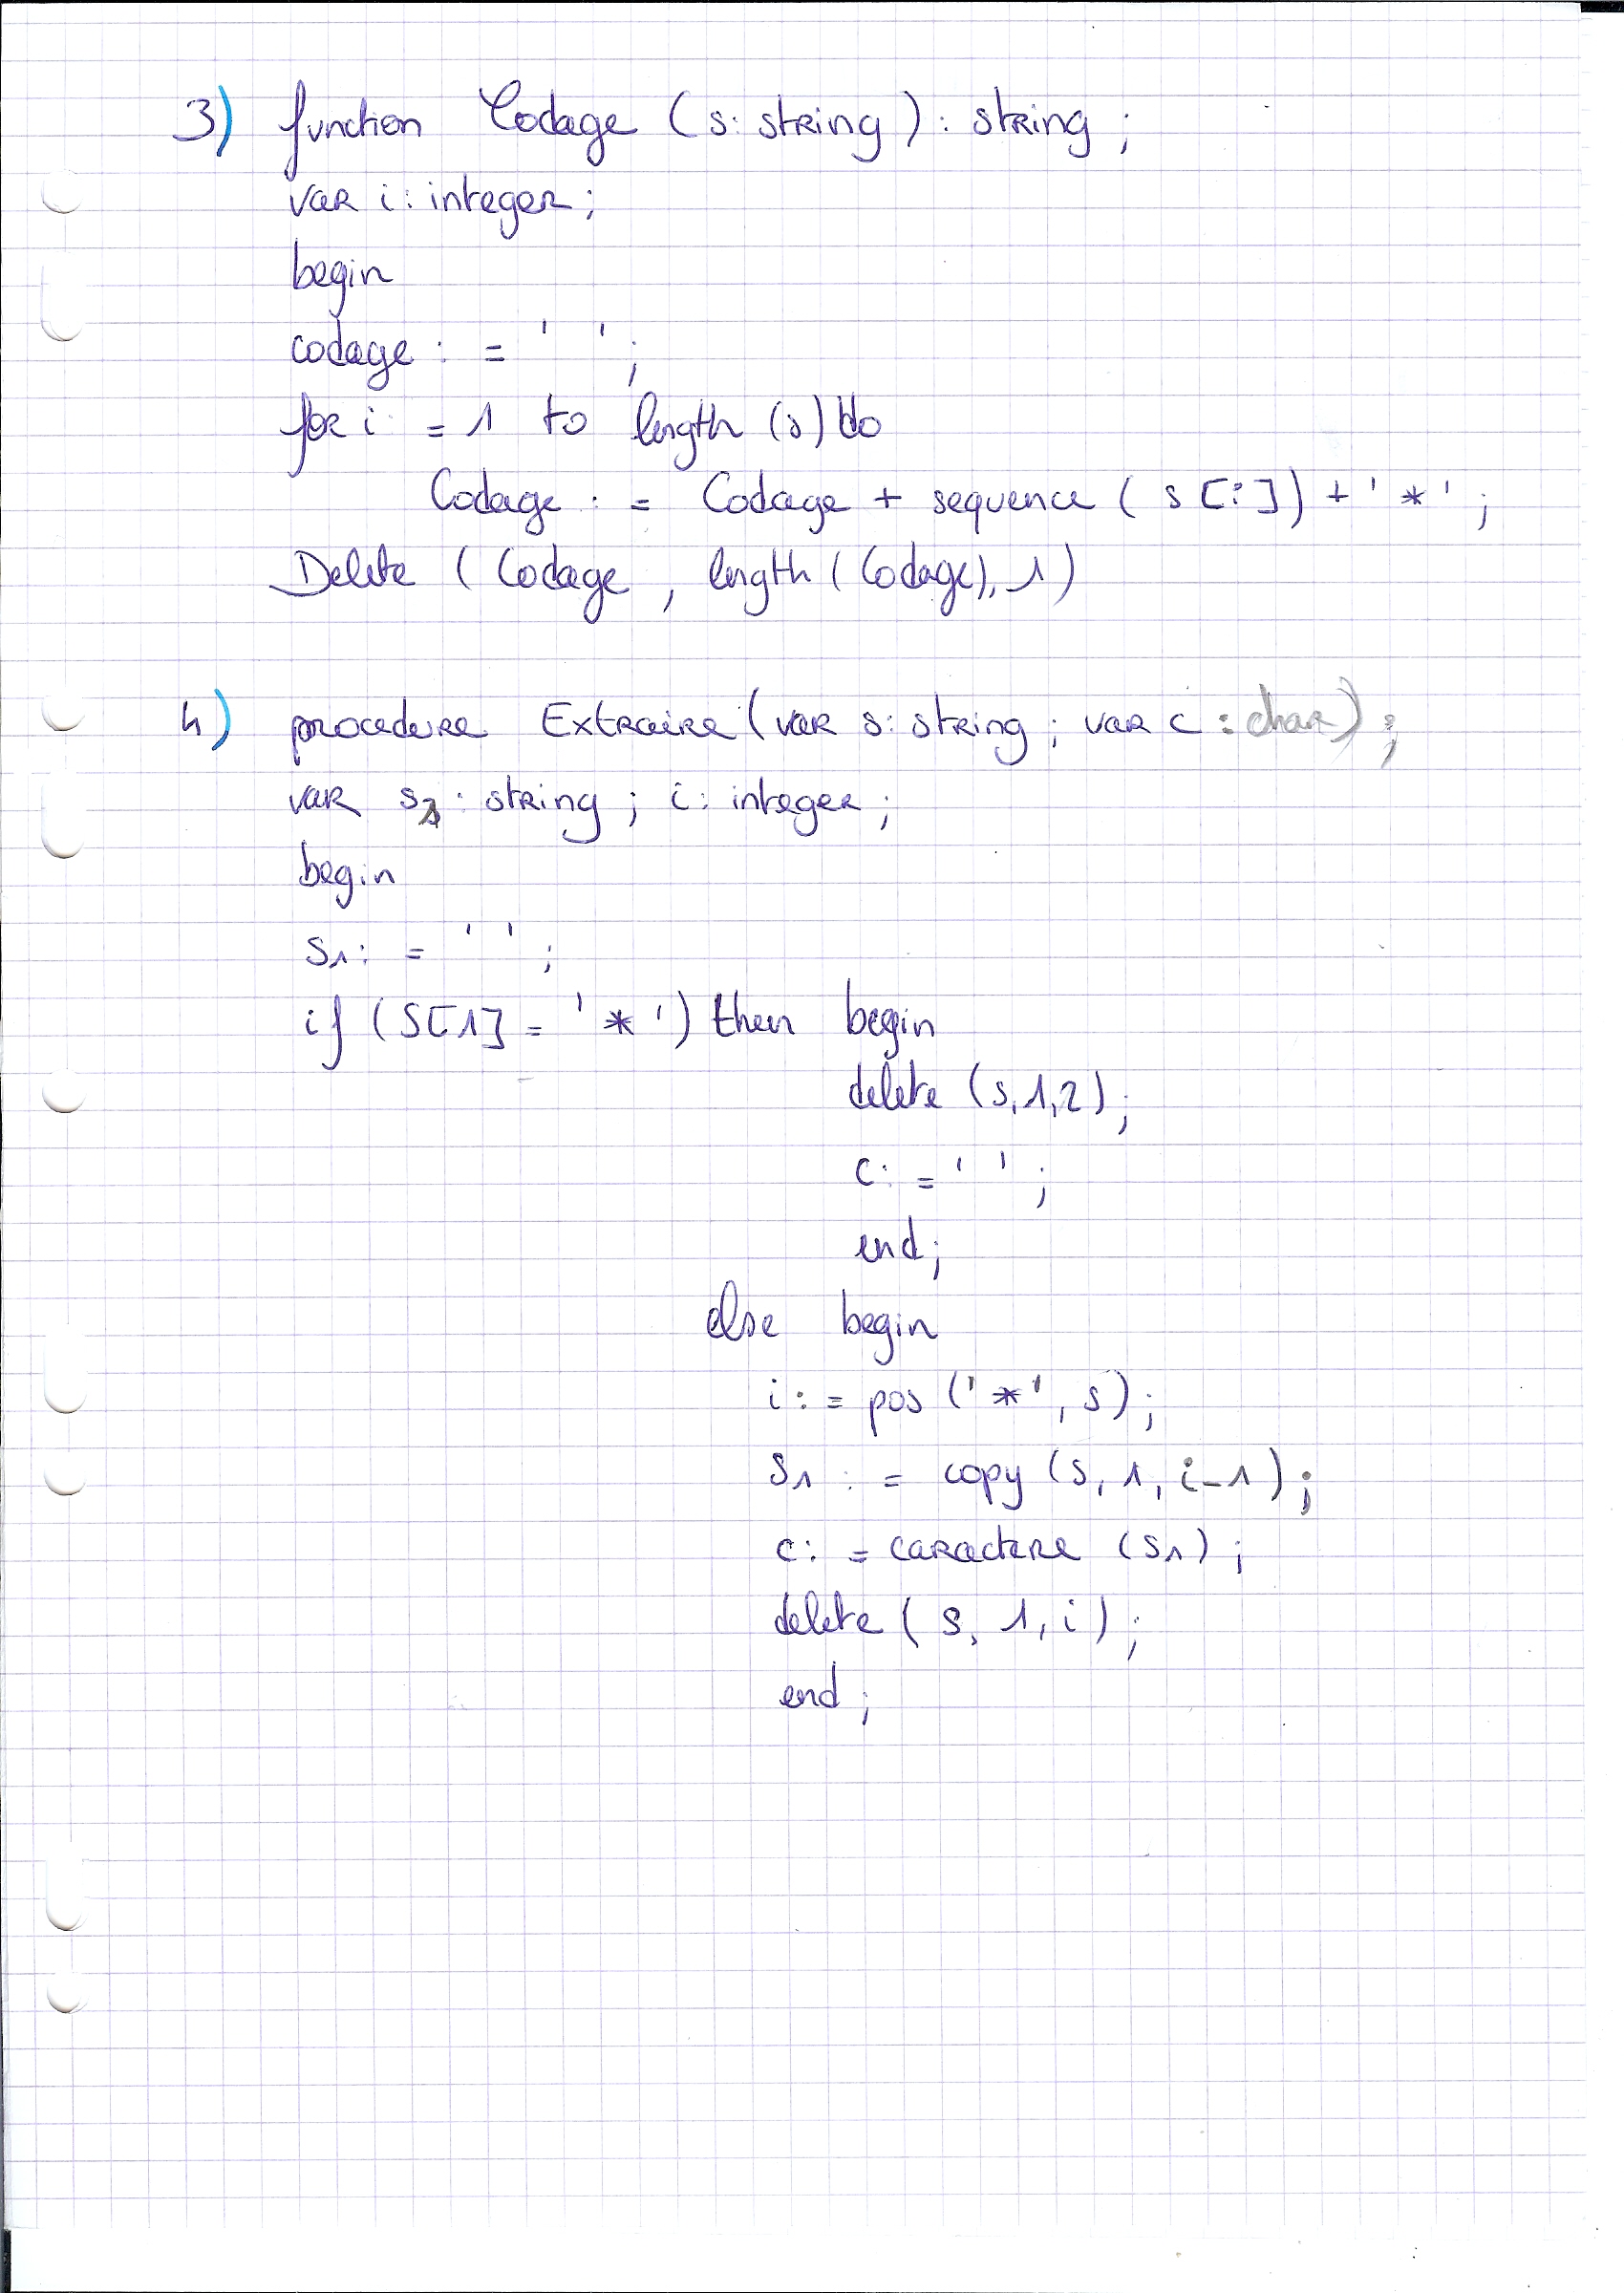 3) function Codage (s: string) : string ;
var i : integer ;
begin
codage : = ' ' ;
for i : = 1 to length (s) do
Codage : = Codage + sequence ( s [i] ) + ' * ' ;
Delete ( Codage , length ( Codage), 1 )
4) procedure Extraire (var s: string ; var c : char) ;
var s1 : string ; i : integer ;
begin
s1 : = ' ' ;
if (S[1] = ' * ') then begin
delete (s, 1, 2) ;
c : = ' ' ;
end ;
else begin
i : = pos (' * ', s) ;
s1 : = copy (s, 1, i-1) ;
c : = caractere (s1) ;
delete ( s, 1, i ) ;
end ;